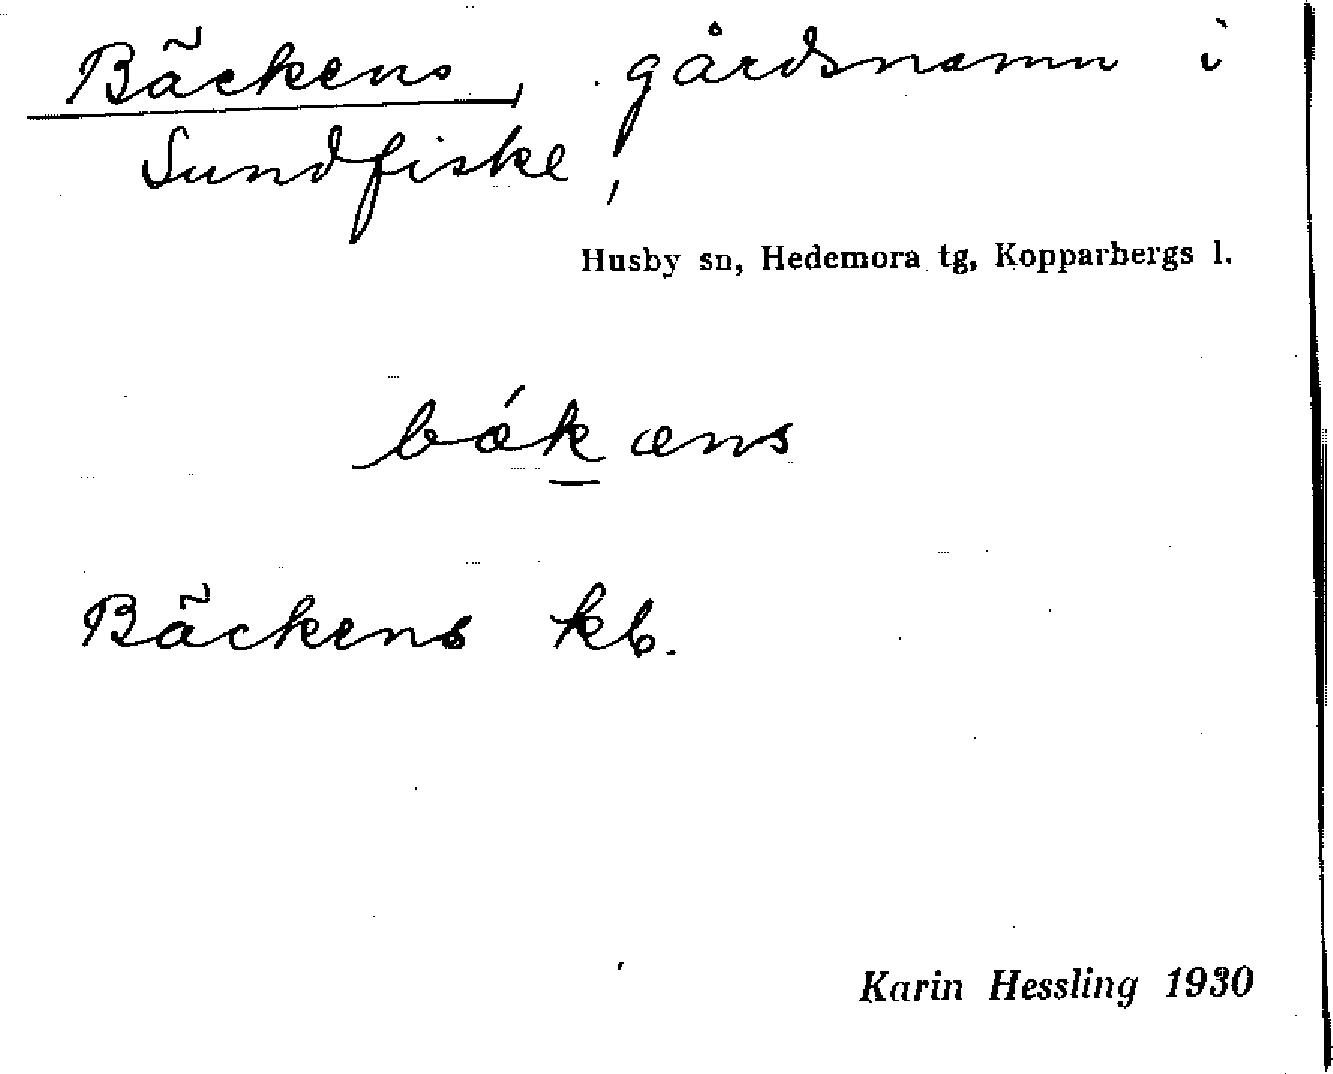 Bäckens, gårdsnamn i
Sundfiske,
Husby sn, Hedemora tg, Kopparbergs l.
bǽk æns
Bäckens kb.
Karin Hessling 1930